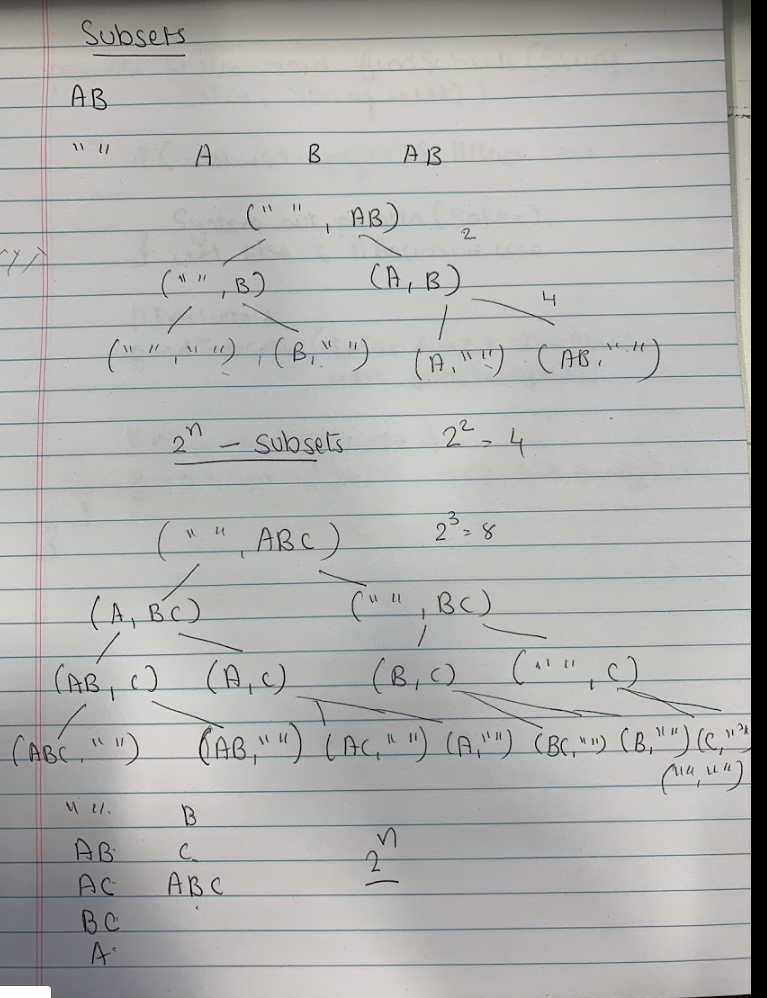 Subsets
AB
" " A B AB
(" ", AB)
2
(" ", B) (A, B)
4
(" ", " "), (B, " ") (A, " ") (AB, " ")
2^n - subsets 2^2 = 4
(" ", ABC) 2^3 = 8
(A, BC) (" ", BC)
(AB, C) (A, C) (B, C) (" ", C)
(ABC, " ") (AB, " ") (AC, " ") (A, " ") (BC, " ") (B, " ") (C, " ")
(" ", " ")
" " B
AB C 2^n
AC ABC
BC
A